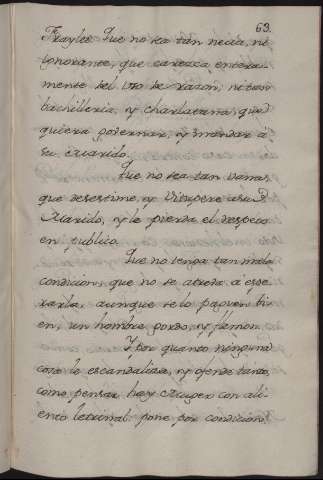 63.
Frayles. Que no sea tan necia, ni
ignorante, que carezca entera-
mente del uso de razon, ni tan
bachillera, y charlatana, que
quiera governar, y mandar à
su Marido.
Que no sea tan vana,
que desestime, y vitupere a su
Marido, y le pierda el respeto
en publico.
Que no tenga tan mala
condicion, que no se atreba á espe-
rarla, aunque se lo paguen bi-
en, un hombre gordo, y flemon.
Y por quanto ninguna
cosa le escandaliza, y ofende tanto,
como pensar hay Muger con ali-
ento letrinal: pone por condicion,